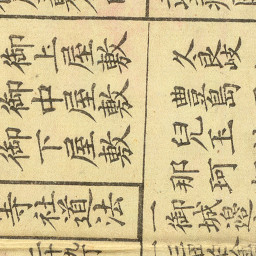 御上屋敷
御中屋敷
御下屋敷
寺社道法
久良岐
豊島
兒玉
那珂
一御城邊